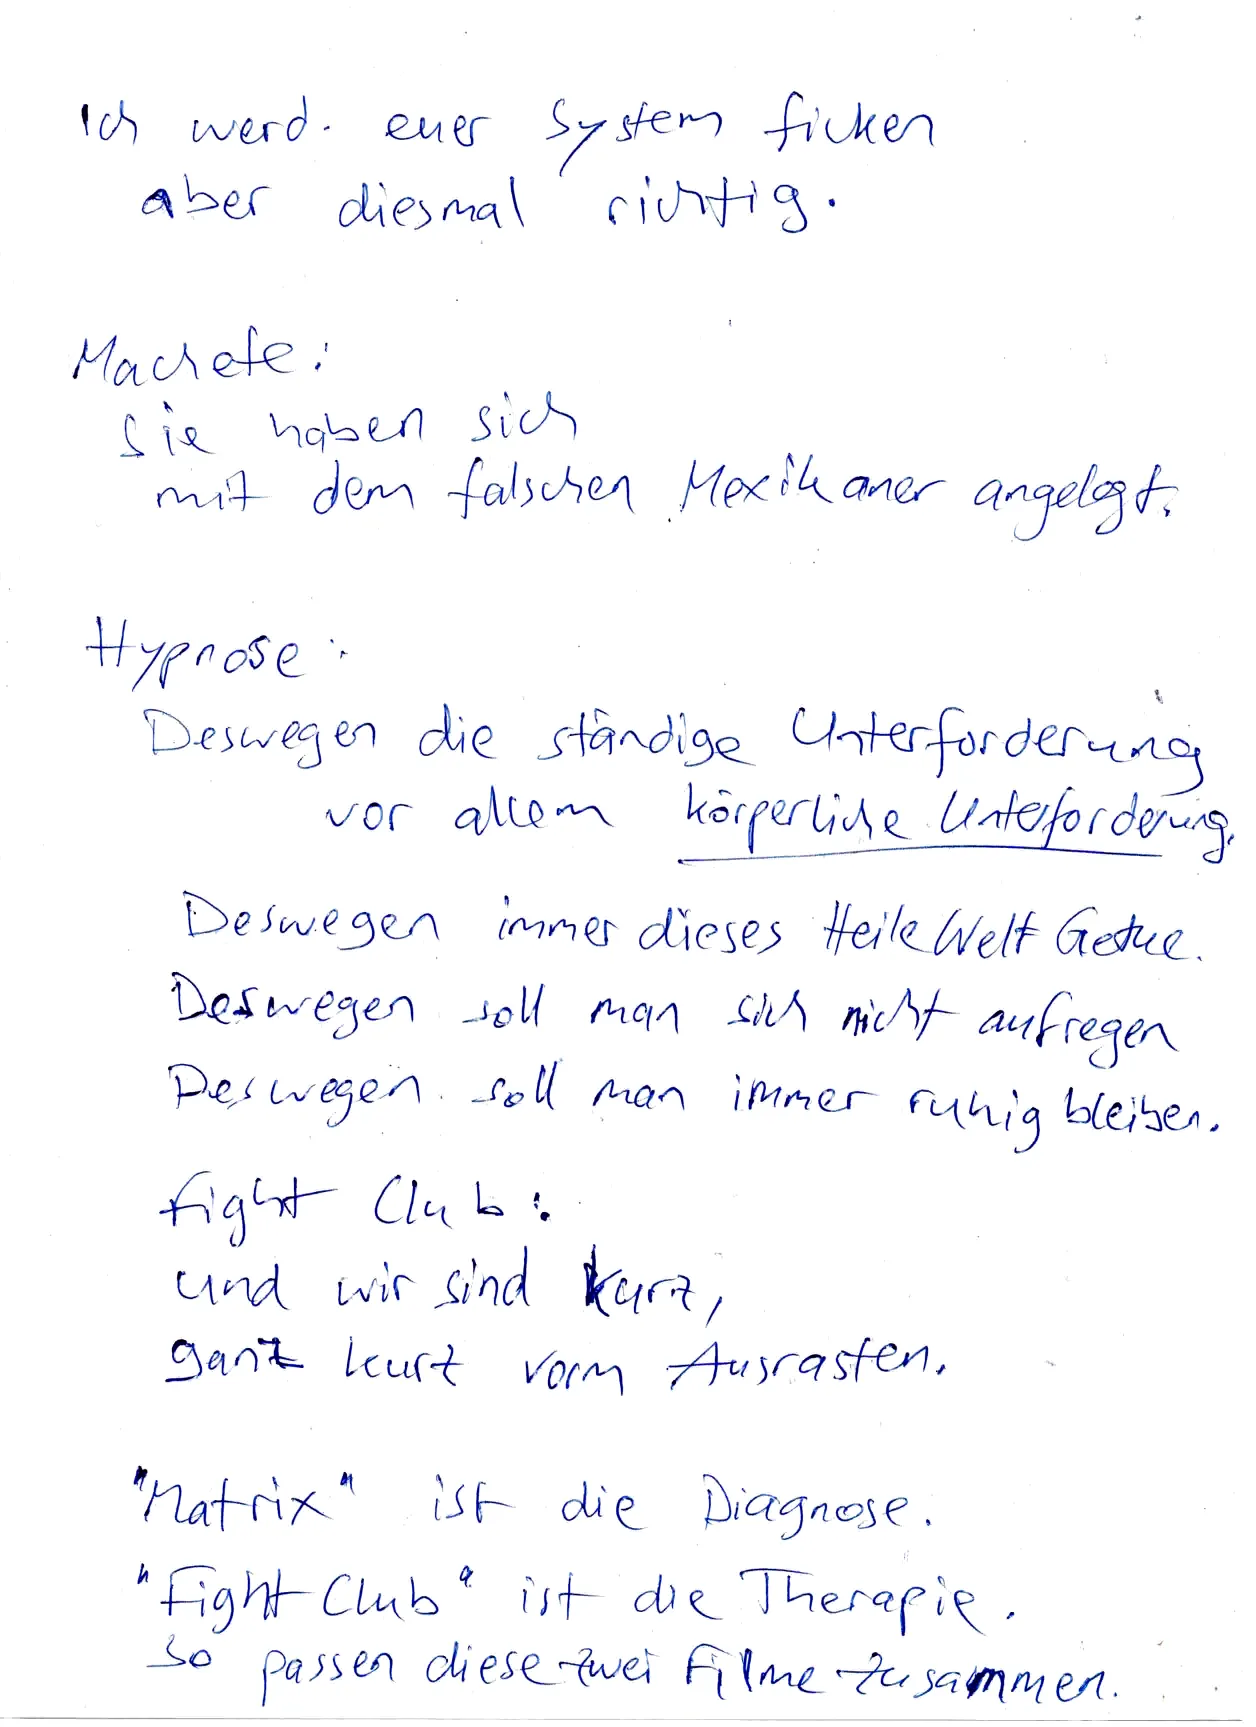 Ich werd. euer System ficken
aber diesmal richtig.
Machete:
Sie haben sich
mit dem falschen Mexikaner angelegt.
Hypnose:
Deswegen die ständige Unterforderung
vor allem körperliche Unterforderung.
Deswegen immer dieses Heile Welt Getue.
Deswegen soll man sich nicht aufregen
Deswegen soll man immer ruhig bleiben.
Fight Club:
und wir sind kurz,
ganz kurz vorm Ausrasten.
"Matrix" ist die Diagnose.
"Fight Club" ist die Therapie.
So passen diese zwei Filme zusammen.